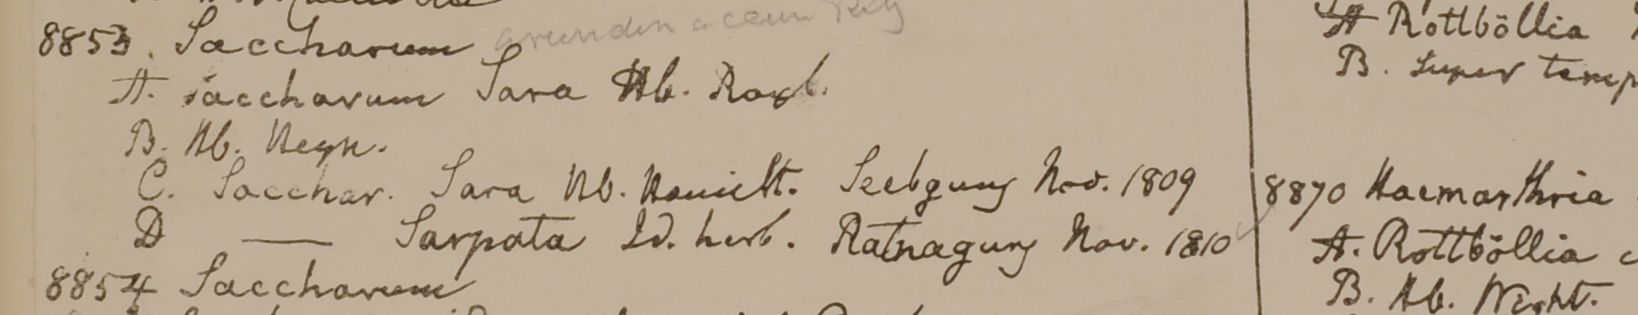 8853. Saccharum arundinaceum Retz
A. Saccharum Sara Hb. Roxb.
B. Hb. Heyn.
C. Sacchar. Sara Hb. Hamilt. Seebgunj Nov. 1809
D —— Sarpata Id. herb. Ratnagunj Nov. 1810
8854 Saccharum
A Rottböllia
B. Super
8870 Haemarthria
A. Rottböllia
B. Hb. Wight.